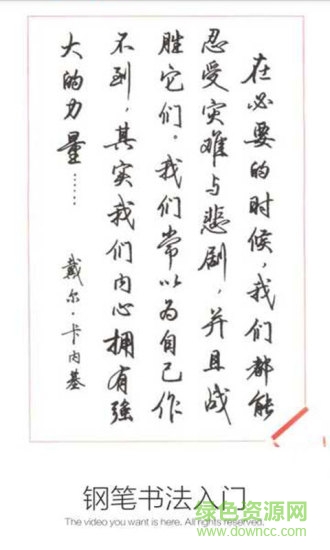 在必要的时候，我们都能
忍受灾难与悲剧，并且战
胜它们。我们常以为自己作
不到，其实我们内心拥有强
大的力量……
戴尔·卡内基
钢笔书法入门
The video you want is here. All rights reserved.
绿色资源网
www.downcc.com